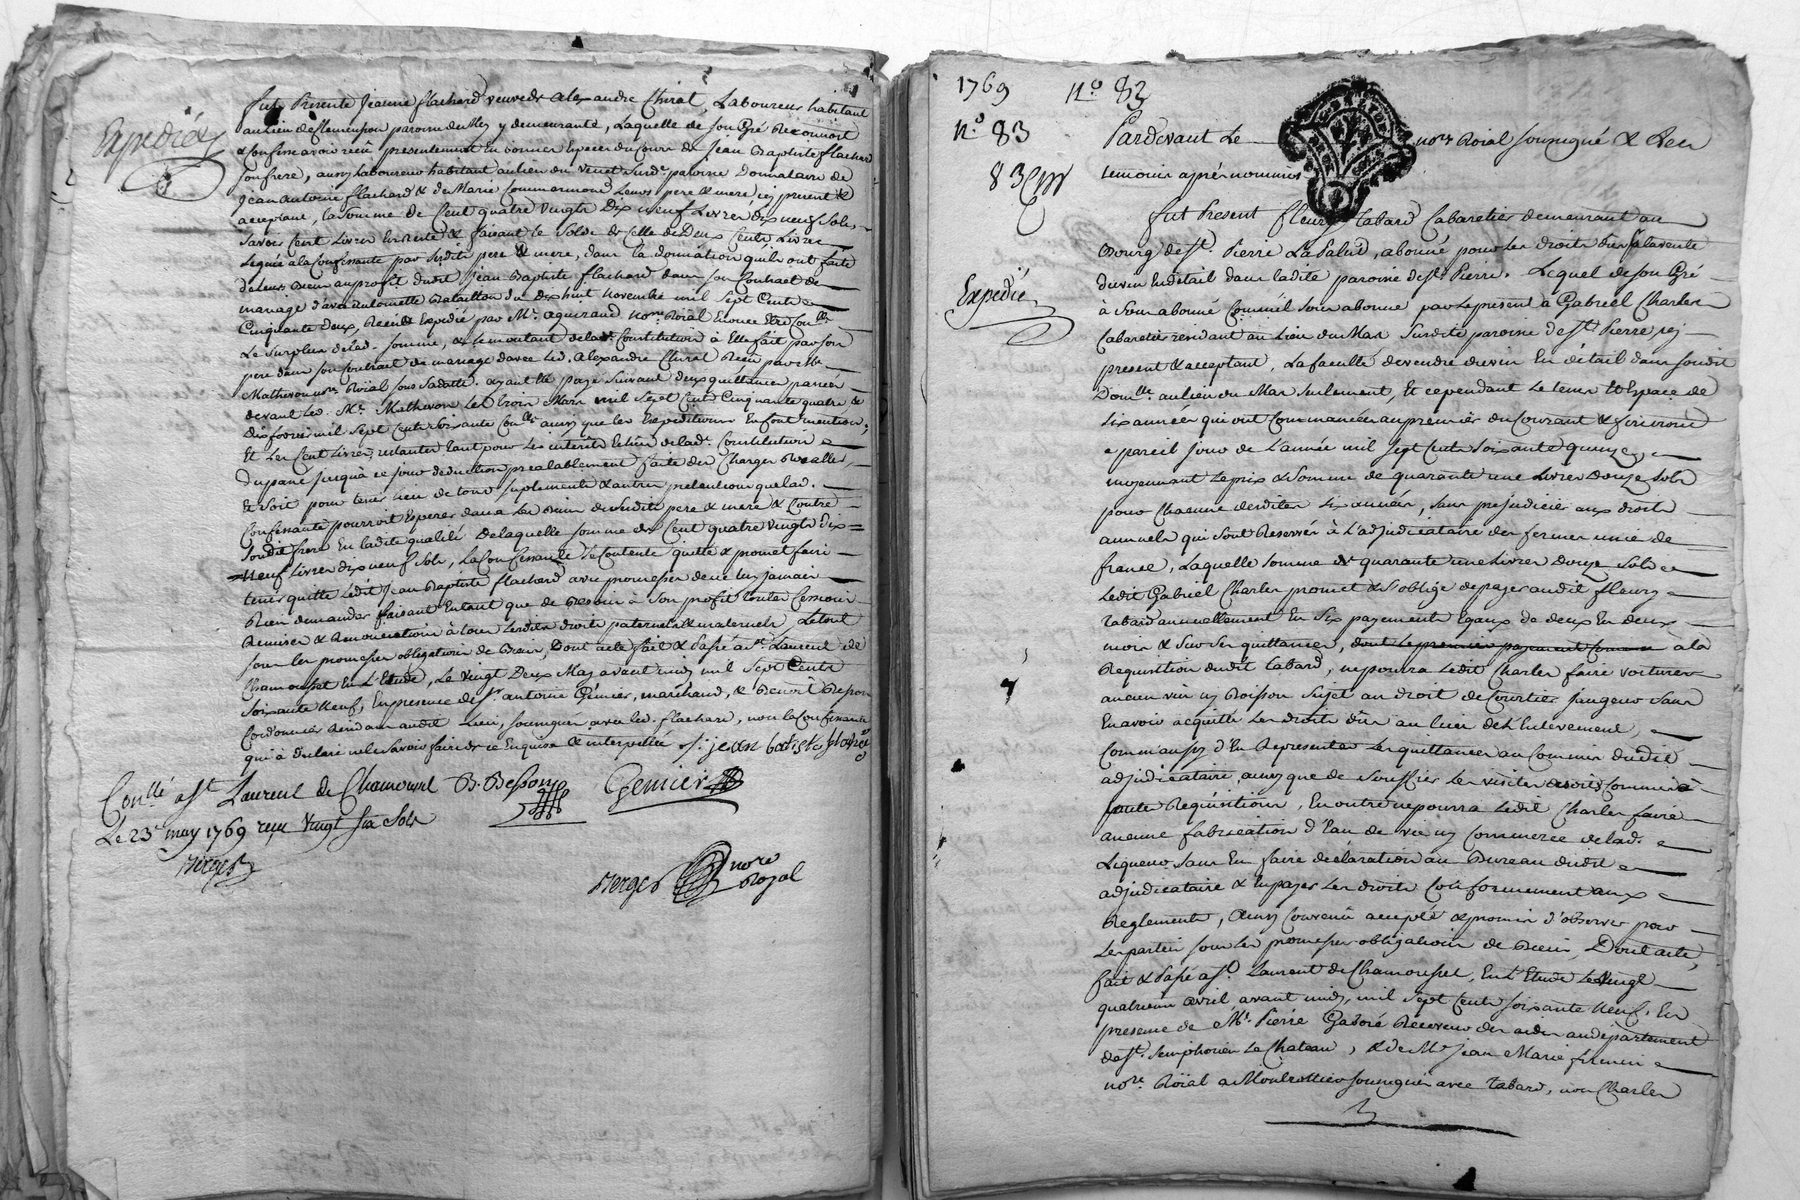 Expediée
fut Presente Jeanne flachard veuve de Alexandre Chirat, Laboureur habitant
au Lieu de Clemenson paroisse du Mey y demeurante, Laquelle de son Gré Reconnoit
& Confesse avoir reçû presentement En bonnes Especes du Cours de Jean Baptiste flachard
son frere, aussy Laboureur habitant au lieu du Venet Surde. paroisse Donnataire de
Jean Antoine flachard & de Marie Commarmond Leurs pere & mere icy present &
acceptant, la Somme de Cent quatre vingts Dix neuf Livres dix neuf Sols,
Savoir Cent Livres En reste & faisant le Solde de Celle de Deux Cents Livres
Leguée a la Confessante par Sesdits pere & mere, dans la donnation quils ont faite
de Leurs Biens au profit dudit Jean Baptiste flachard dans son Contract de
mariage d'avec Antoinette Bataillon du dix huit novembre mil Sept Cents
Cinquante deux, Recu & Expedié par Me. aguiraud nore Roial En onze dud. Conllé
Le Surplus de lad. Somme, & le montant de lad. Constitution à Elle fait par son
pere dans son Contrat de mariage davec led. Alexandre Chirat Reçu par Me
Mathevon nre. Roïal Sous Sa datte. ayant Eté payé Suivant deux quittances passées
devant led. Me. Mathevon Le trois Mars mil Sept Cents Cinquante quatre, &
Dix fevrier mil Sept Cents Soixante Conllé ainsy que les Expeditions En font mention;
Et Les Cent Livres restantes tant pour les interets Echûs de lad. Constitution
du passé jusqu'à ce jour deduction prealablement faite des Charges Royalles,
& Soit pour tenir lieu de tous Suplements & autres pretentions que lad.
Confessante pourroit Esperer dans les Biens de Sesdits pere & mere & Contre
Sondit frere En ladite qualité De laquelle somme de Cent quatre Vingts Dix
Neuf Livres dix neuf Sols, La Confessante Se Contente quitte & promet faire
tenir quitte Ledit Jean Baptiste flachard avec promesses de ne luy jamais
Rien demander faisant Entant que de Besoin à Son profit toutte Cession
Remises & Renonciation à tous Lesdits droits paternels & maternels. Le tout
Sous les promesses obligations de Biens, Dont acte fait & Passé a St. Laurent de
Chamousset En L'Etude, Le Vingt Deux May avant midy mil Sept Cents
Soixante Neuf, En presence de Sr. antoine Génier, marchand, & Benoît Besson
Cordonnier Residans audit Lieu, soussignés avec led. flachard, non la Confessante
qui à declaré ne le Savoir faire de ce Enquise & interpellée s. jean batiste flachard
Conllé a St Laurent de Chamousset B. Besson Genier
Le 23e. may 1769 reçu vingt six Sols
Verger
Verger nore Royal
1769 No. 83
No. 83
83
Pardevant Le nore Roïal soussigné & Les
temoins après nommés
Expedié
fut Present fleury Tabard Cabaretier demeurant au
Bourg de St. Pierre La Palud, abonné pour les droits dûs à la vente
du vin En detail dans ladite paroisse de St. Pierre. Lequel de son Gré
à Sous abonné Comme il Sous abonne par le present à Gabriel Charles
Cabaretier résidant au Lieu du Mas Surdite paroisse de St. Pierre, icy
present & acceptant, La faculté de vendre du vin En détail dans Sondit
Domlle. au lieu du Mas Seulement, Et cependant Le tems & Espace de
Six années qui ont Commancées au premier du Courant & finiront
a pareil jour de L'année mil Sept Cents Soixante quinze,
moyennant Le prix & Somme de quarante une Livres Douze Sols
pour Chacune desdites Six années, Sans prejudicier aux droits
annuels qui Sont Reservés à L'adjudicataire des fermes unies de
france, Laquelle Somme de quarante une Livres Douze Sols
Ledit Gabriel Charles promet & s'oblige de payer audit fleury
Tabard annuellement En Six payements Egaux de deux En deux
mois & Sur Ses quittances, dont le premier payement Comme a la
Requisition dudit Tabard, ne pourra Ledit Charles faire voiturer
aucun vin ny Boisson Sujet au droit de Courtier jaugeur Sans
En avoir acquitté Les droits dûs au lieu de L'Enlevement,
Comm'aussy d'En Representer Les quittances au Commis dudit
adjudicataire, ainsy que de Souffrir Les visites desdits Commis à
toute Requisition, En outre ne pourra Ledit Charles faire
aucune fabrication d'Eau de vie ny Commerce de lad.
Liqueur Sans En faire déclaration au Bureau dudit
adjudicataire & En payer Les droits Conformement aux
Reglements, Ainsy Convenû accepté & promis d'observer par
Les parties Sous Les promesses obligations de Biens, Dont acte,
fait & Passé a St. Laurent de Chamousset, En L'Etude Le Vingt
quatrieme Avril avant midy, mil Sept Cents Soixante Neuf. En
presence de Mr. Pierre Gaboré Receveur des aides au département
de St. Simphorien Le Chateau, & de Me. Jean Marie
nore. Roïal a Montrottier soussignés avec Tabard, non Charles